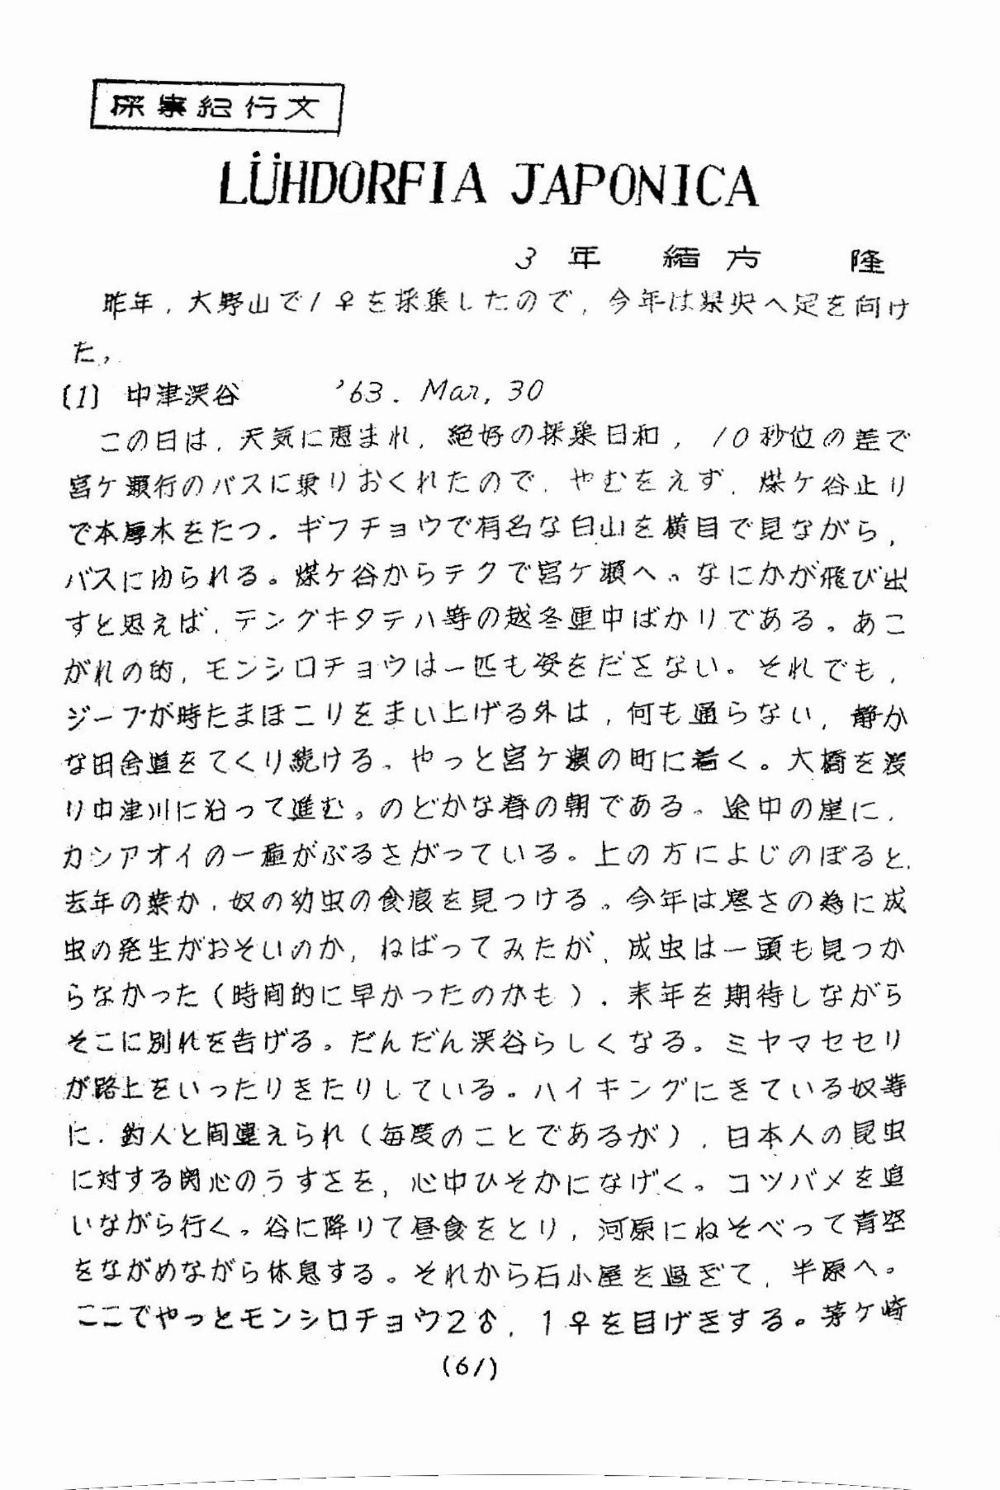 採集紀行文
LÜHDORFIA JAPONICA
3年 緒方 隆
昨年,大野山で1♀を採集したので,今年は県央へ足を向け
た,
(1) 中津渓谷 '63. Mar, 30
この日は,天気に恵まれ,絶好の採集日和,10秒位の差で
宮ケ瀬行のバスに乗りおくれたので,やむをえず,煤ケ谷止り
で本厚木をたつ。ギフチョウで有名な白山を横目で見ながら,
バスにゆられる。煤ケ谷からテクで宮ケ瀬へ。なにかが飛び出
すと思えば,テングキタテハ等の越冬亜中ばかりである。あこ
がれの的,モンシロチョウは一匹も姿をださない。それでも,
ジープが時たまほこりをまい上げる外は,何も通らない,静か
な田舎道をてくり続ける。やっと宮ケ瀬の町に着く。大橋を渡
り中津川に沿って進む。のどかな春の朝である。途中の崖に,
カンアオイの一種がぶるさがっている。上の方によじのぼると,
去年の葉か,奴の幼虫の食痕を見つける。今年は寒さの為に成
虫の発生がおそいのか,ねばってみたが,成虫は一頭も見つか
らなかった(時間的に早かったのかも),来年を期待しながら
そこに別れを告げる。だんだん渓谷らしくなる。ミヤマセセリ
が路上をいったりきたりしている。ハイキングにきている奴等
に,釣人と間違えられ(毎度のことであるが),日本人の昆虫
に対する関心のうすさを,心中ひそかになげく。コツバメを追
いながら行く。谷に降りて昼食をとり,河原にねそべって青空
をながめながら休息する。それから石小屋を過ぎて,半原へ。
ここでやっとモンシロチョウ2♂,1♀を目げきする。茅ケ崎
(61)